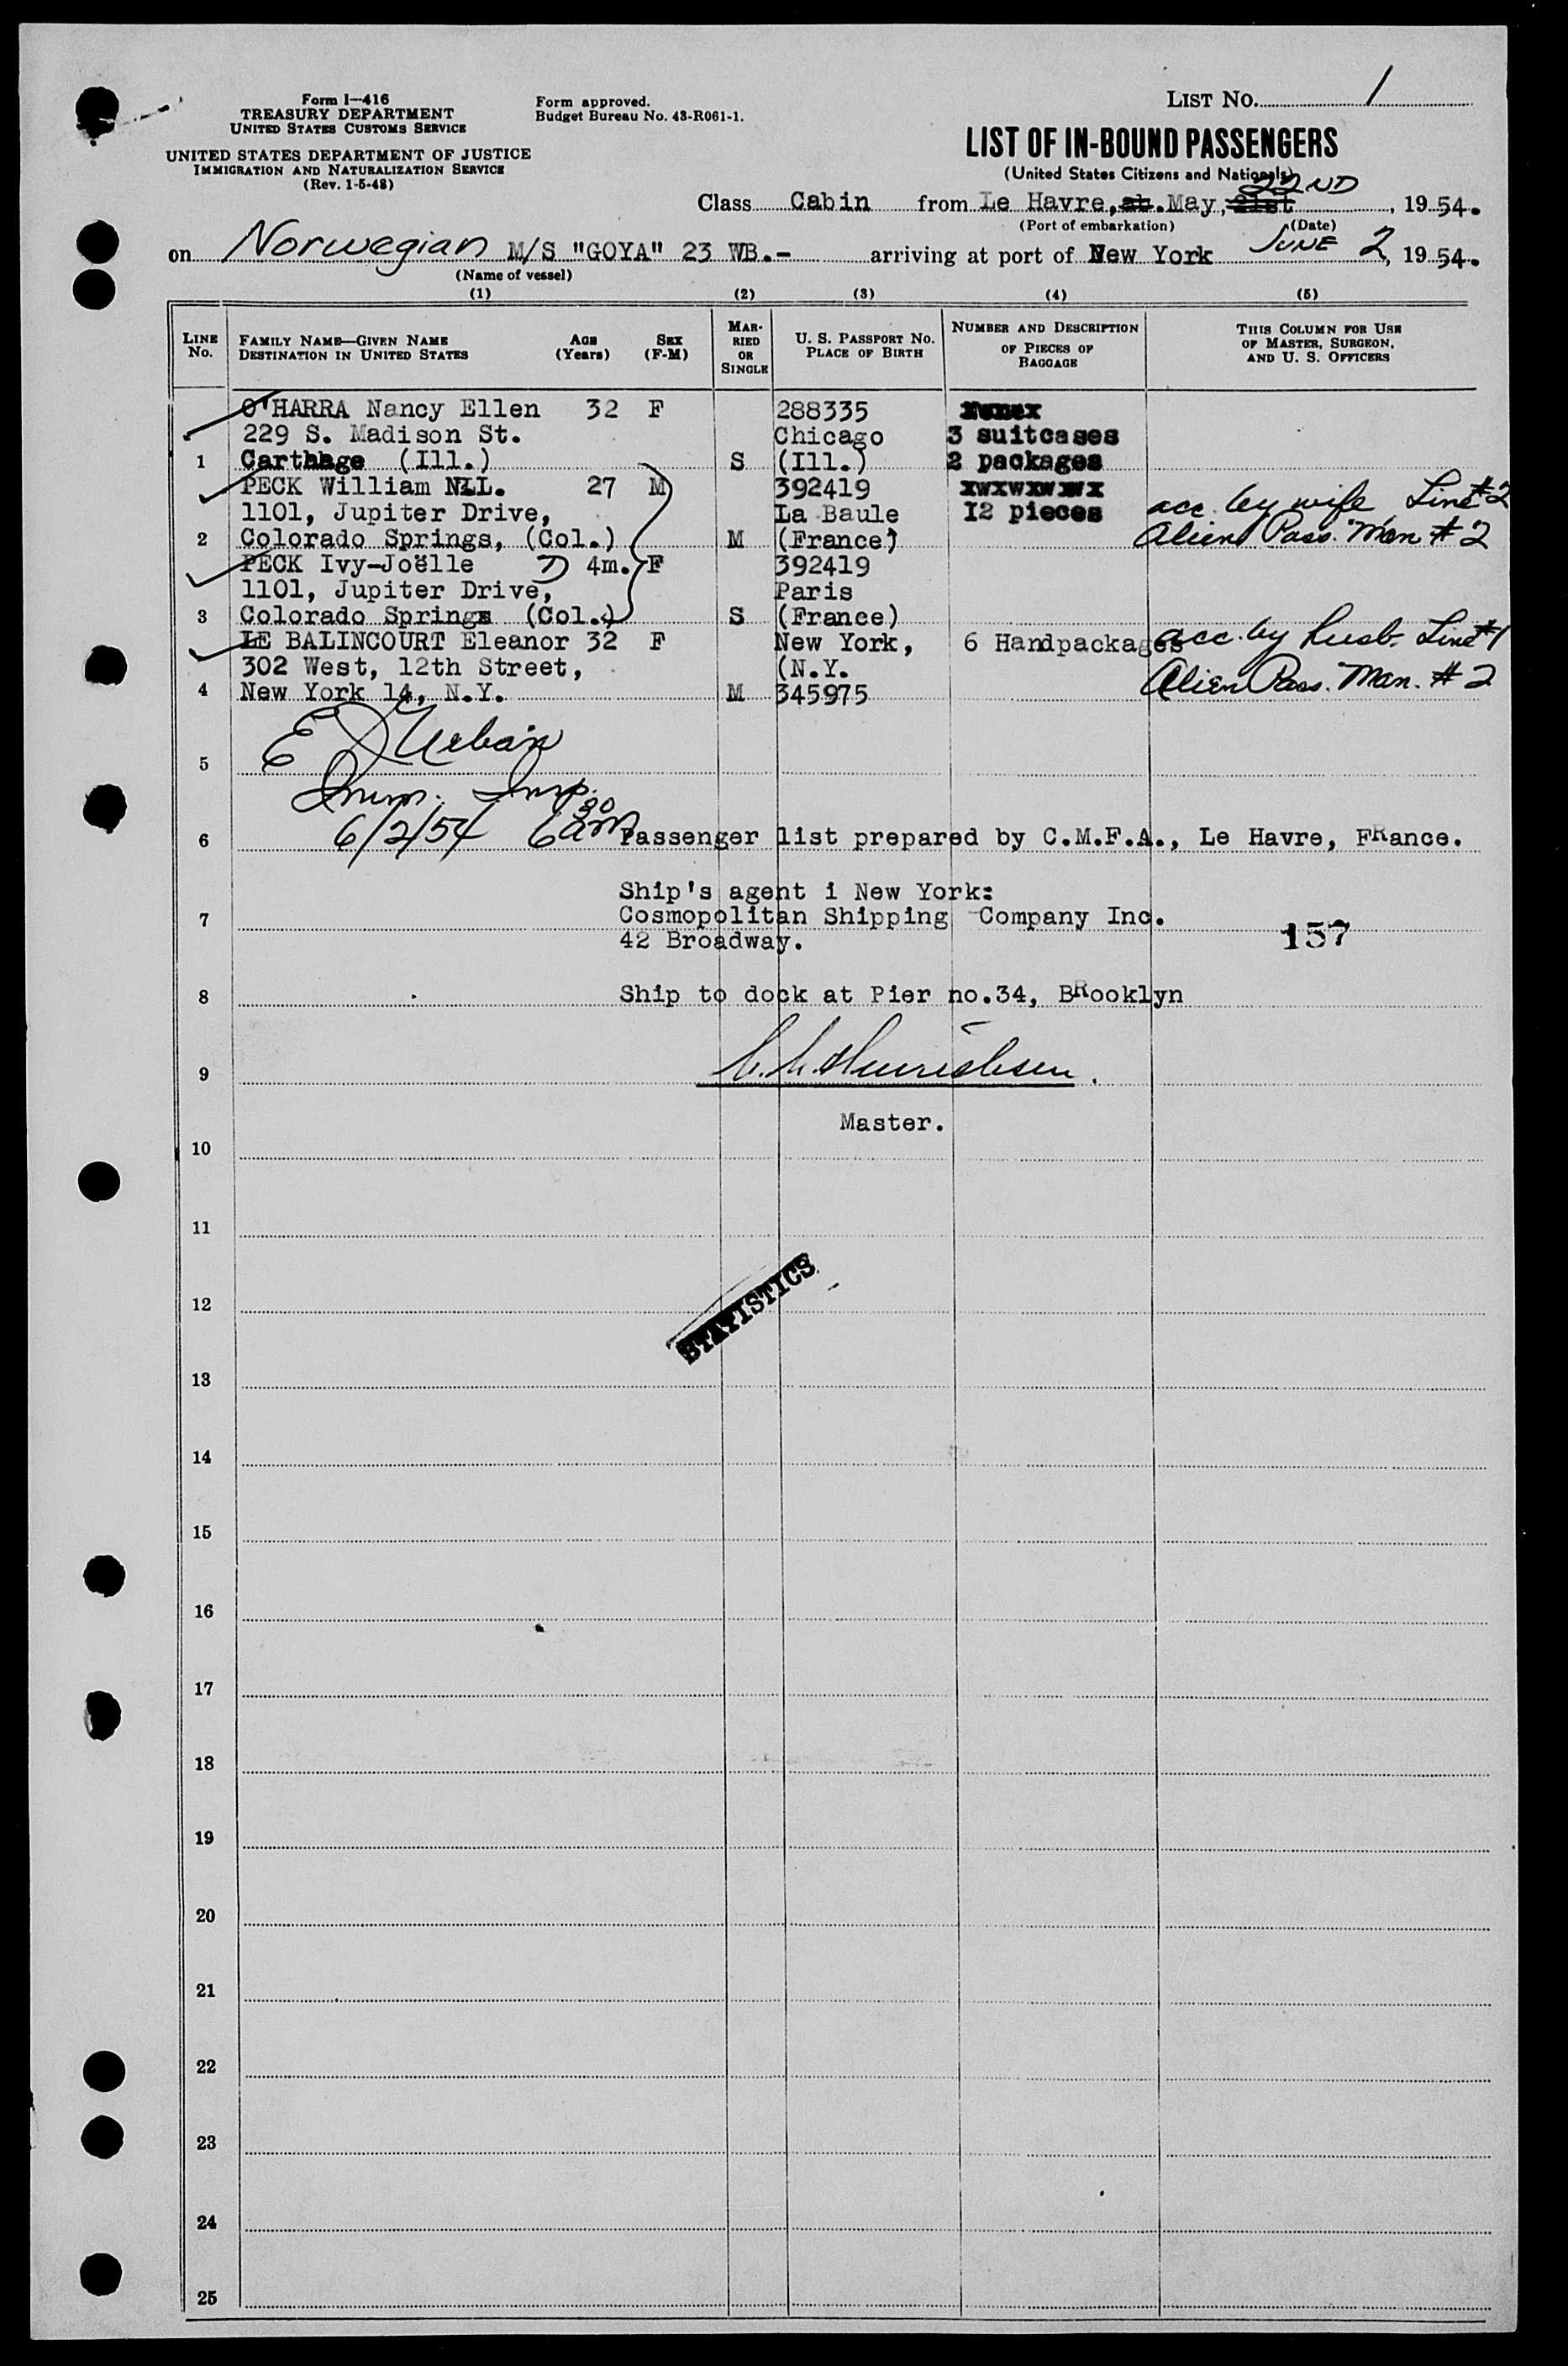 LIST NO. 1
Form I-416
TREASURY DEPARTMENT
UNITED STATES CUSTOMS SERVICE
UNITED STATES DEPARTMENT OF JUSTICE
IMMIGRATION AND NATURALIZATION SERVICE
(Rev. 1-5-48)
Form approved.
Budget Bureau No. 43-R061-1.
LIST OF IN-BOUND PASSENGERS
(United States Citizens and Nationals)
22ND
Class Cabin from Le Havre, ab. May, 21st, 19 54.
(Port of embarkation) (Date)
on Norwegian M/S "GOYA" 23 WB.- arriving at port of New York JUNE 2, 19 54.
(Name of vessel)
(1) (2) (3) (4) (5)
LINE No.
FAMILY NAME—GIVEN NAME AGE SEX
DESTINATION IN UNITED STATES (Years) (F-M)
MARRIED OR SINGLE
U. S. PASSPORT NO.
PLACE OF BIRTH
NUMBER AND DESCRIPTION
OF PIECES OF
BAGGAGE
THIS COLUMN FOR USE
OF MASTER, SURGEON,
AND U. S. OFFICERS
O'HARRA Nancy Ellen 32 F 288335
229 S. Madison St. Chicago 3 suitcases
1 Carthage (Ill.) S (Ill.) 2 packages
PECK William NLL. 27 M 392419 xwxwxwxwx
1101, Jupiter Drive, La Baule 12 pieces acc. by wife, Line #2
2 Colorado Springs, (Col.) M (France) Alien Pass. Man # 2
PECK Ivy-Joëlle 4m. F 392419
1101, Jupiter Drive, Paris
3 Colorado Springs (Col.) S (France)
LE BALINCOURT Eleanor 32 F New York, 6 Handpackages acc. by husb. Line #1
302 West, 12th Street, (N.Y.
4 New York 14, N.Y. M 345975 Alien Pass. Man. # 2
E J Urban
5
Imm. Insp.
6/2/54 6 30 am
6 Passenger list prepared by C.M.F.A., Le Havre, FRance.
Ship's agent i New York:
7 Cosmopolitan Shipping Company Inc.
42 Broadway.
157
8 Ship to dock at Pier no.34, BRooklyn
9
Master.
10
11
12
STATISTICS
13
14
15
16
17
18
19
20
21
22
23
24
25